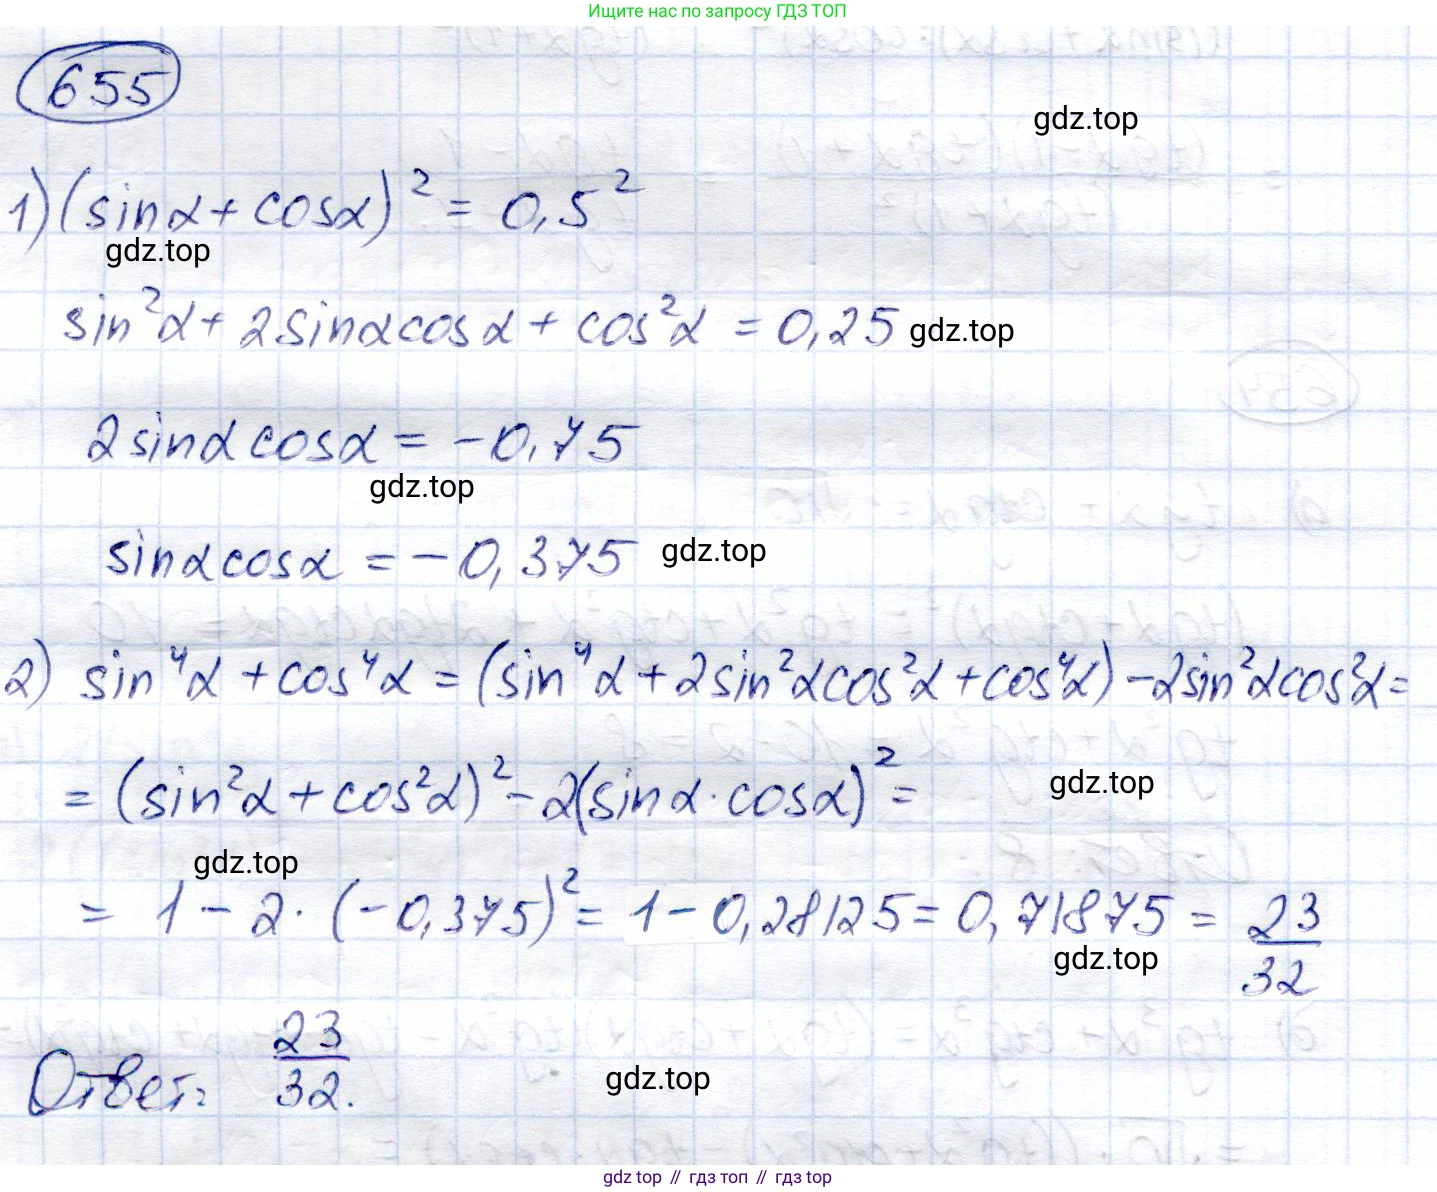 Ищите нас по запросу ГДЗ ТОП
655
gdz.top
1) (sinα + cosα)² = 0,5²
gdz.top
sin²α + 2sinαcosα + cos²α = 0,25 gdz.top
2sinαcosα = -0,75
gdz.top
sinαcosα = -0,375 gdz.top
2) sin⁴α + cos⁴α = (sin⁴α + 2sin²αcos²α + cos⁴α) - 2sin²αcos²α =
= (sin²α + cos²α)² - 2(sinα·cosα)² = gdz.top
gdz.top
= 1 - 2·(-0,375)² = 1 - 0,28125 = 0,71875 = 23/32
gdz.top
Ответ: 23/32.
gdz.top
gdz top // гдз топ // gdz top